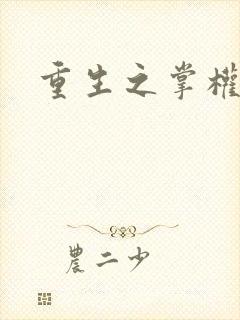 重生之掌權
農二少